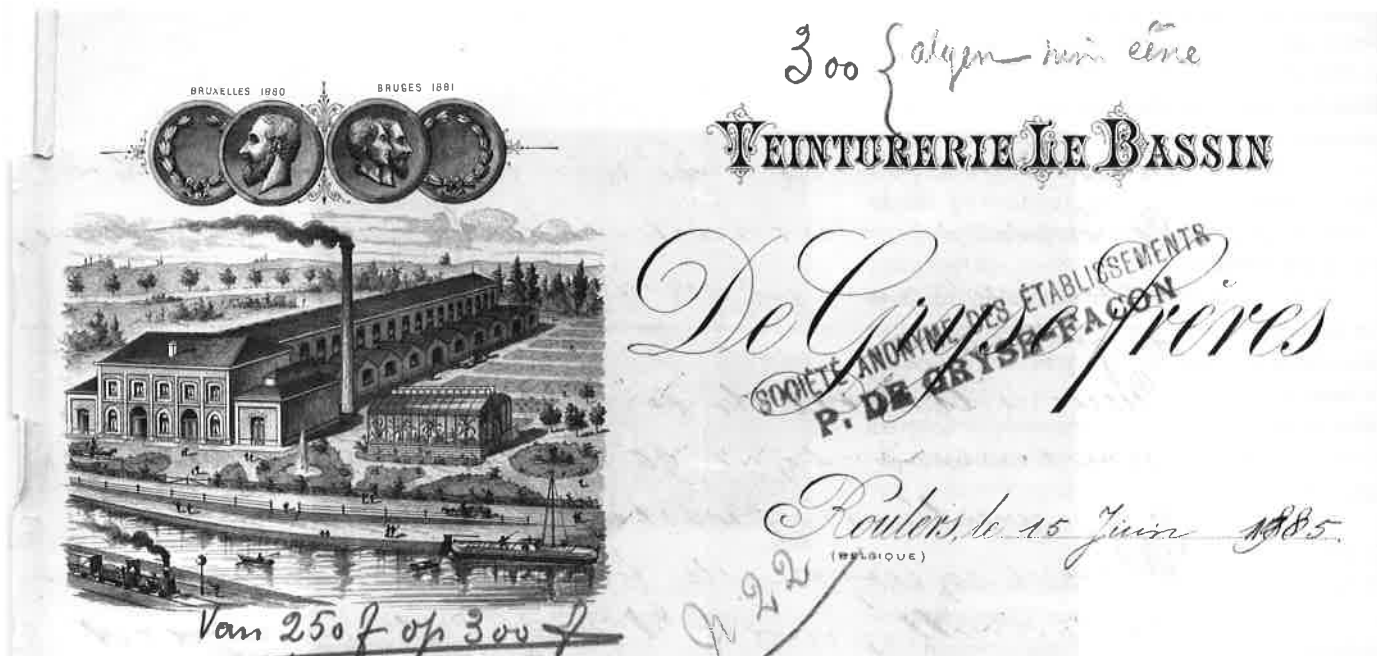 BRUXELLES 1880
BRUGES 1881
300
TEINTURERIE LE BASSIN
De Gryse Frères
SOCIÉTÉ ANONYME DES ÉTABLISSEMENTS
P. DE GRYSE-FACON
Roulers, le 15 Juin 1885.
(BELGIQUE)
22
Van 250 f op 300 f